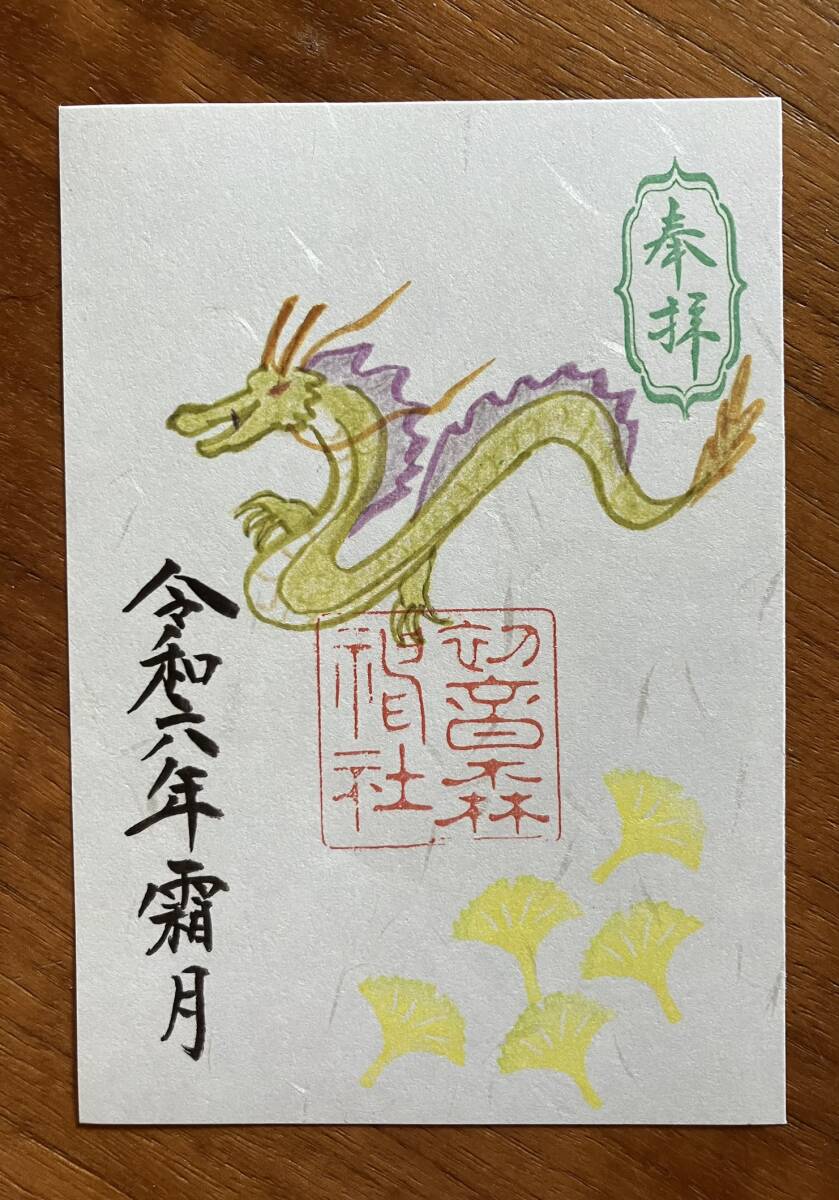 奉拝
初音森
神社
令和六年霜月